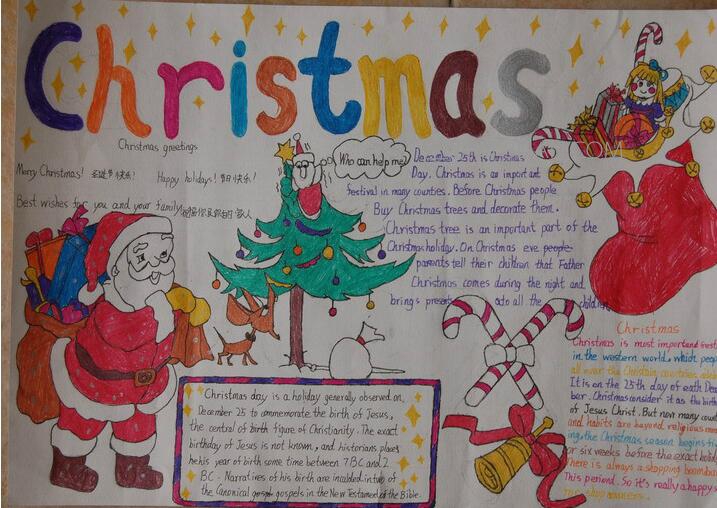 Christmas
Christmas greetings
Merry Christmas! 圣诞节快乐!
Happy holidays! 节日快乐!
Best wishes for you and your family
Who can help me?
December 25th is Christmas
Day. Christmas is an important
festival in many counties. Before Christmas people
Buy Christmas trees and decorate them.
Christmas tree is an important part of the
Christmas holiday. On Christmas eve people
parents tell their children that Father
Christmas comes during the night and
brings presents to all the children
Christmas day is a holiday generally observed on
December 25 to ommemorate the birth of Jesus,
the central of birth figure of Christianity. The exact
birthday of Jesus is not known, and historians place
he his year of birth some time between 7 BC and 2
BC. Narratives of his birth are included in two of
the Canonical gospels in the New Testamed of the Bible.
Christmas
Christmas is most important fest
in the western world. which peop
all over the Christian countries
It is on the 25th day of eath Dec
ber. Christmas consider it as the birth
of Jesus Christ. But now many coun
and habits are beyond religious
ing, the Christmas season begins
or six weeks before the exact holid
There is always a shopping boom
This periend. So it's really a happy
for shop owners.